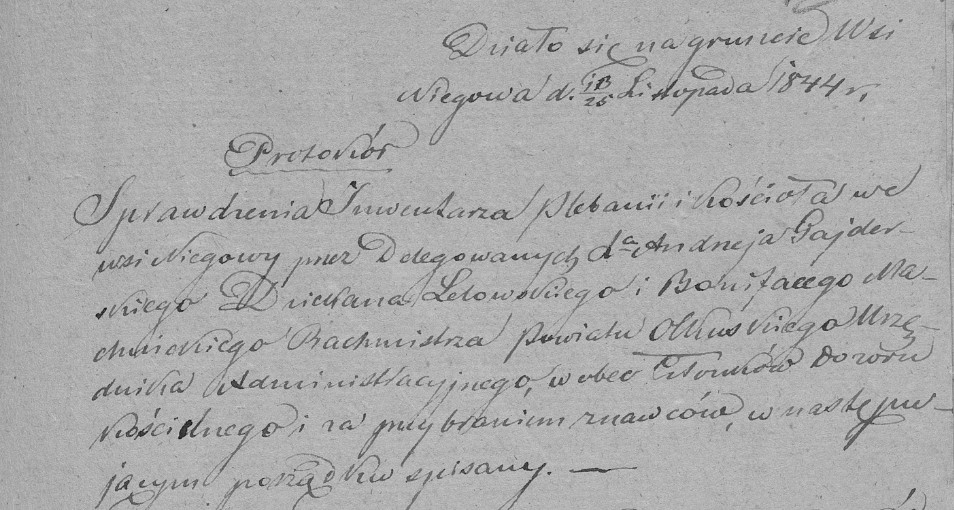 Działo się na gruncie Wsi
Niegowa d. 13/25 Listopada 1844 r.
Protokół
Sprawdzenia Inwentarza Plebanii i Kościoła we
wsi Niegowy przez Delegowanych Andrzeja Gajder-
skiego Dziekana Lelowskiego i Bonifacego Ma-
chnickiego Rachmistrza Powiatu Olkuskiego Urzę-
dnika Administracyjnego, w obec Członków Dozoru
Kościelnego i za przybraniem znawców, w następu-
jącym porządku spisany. —